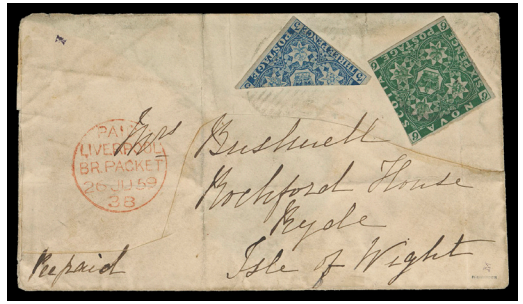 POSTAGE
THREE
POSTAGE
NOVA
PAID
LIVERPOOL
BR. PACKET
26 JU 59
3B
Mrs Bushnell
Rochford House
Ryde
Isle of Wight
Prepaid